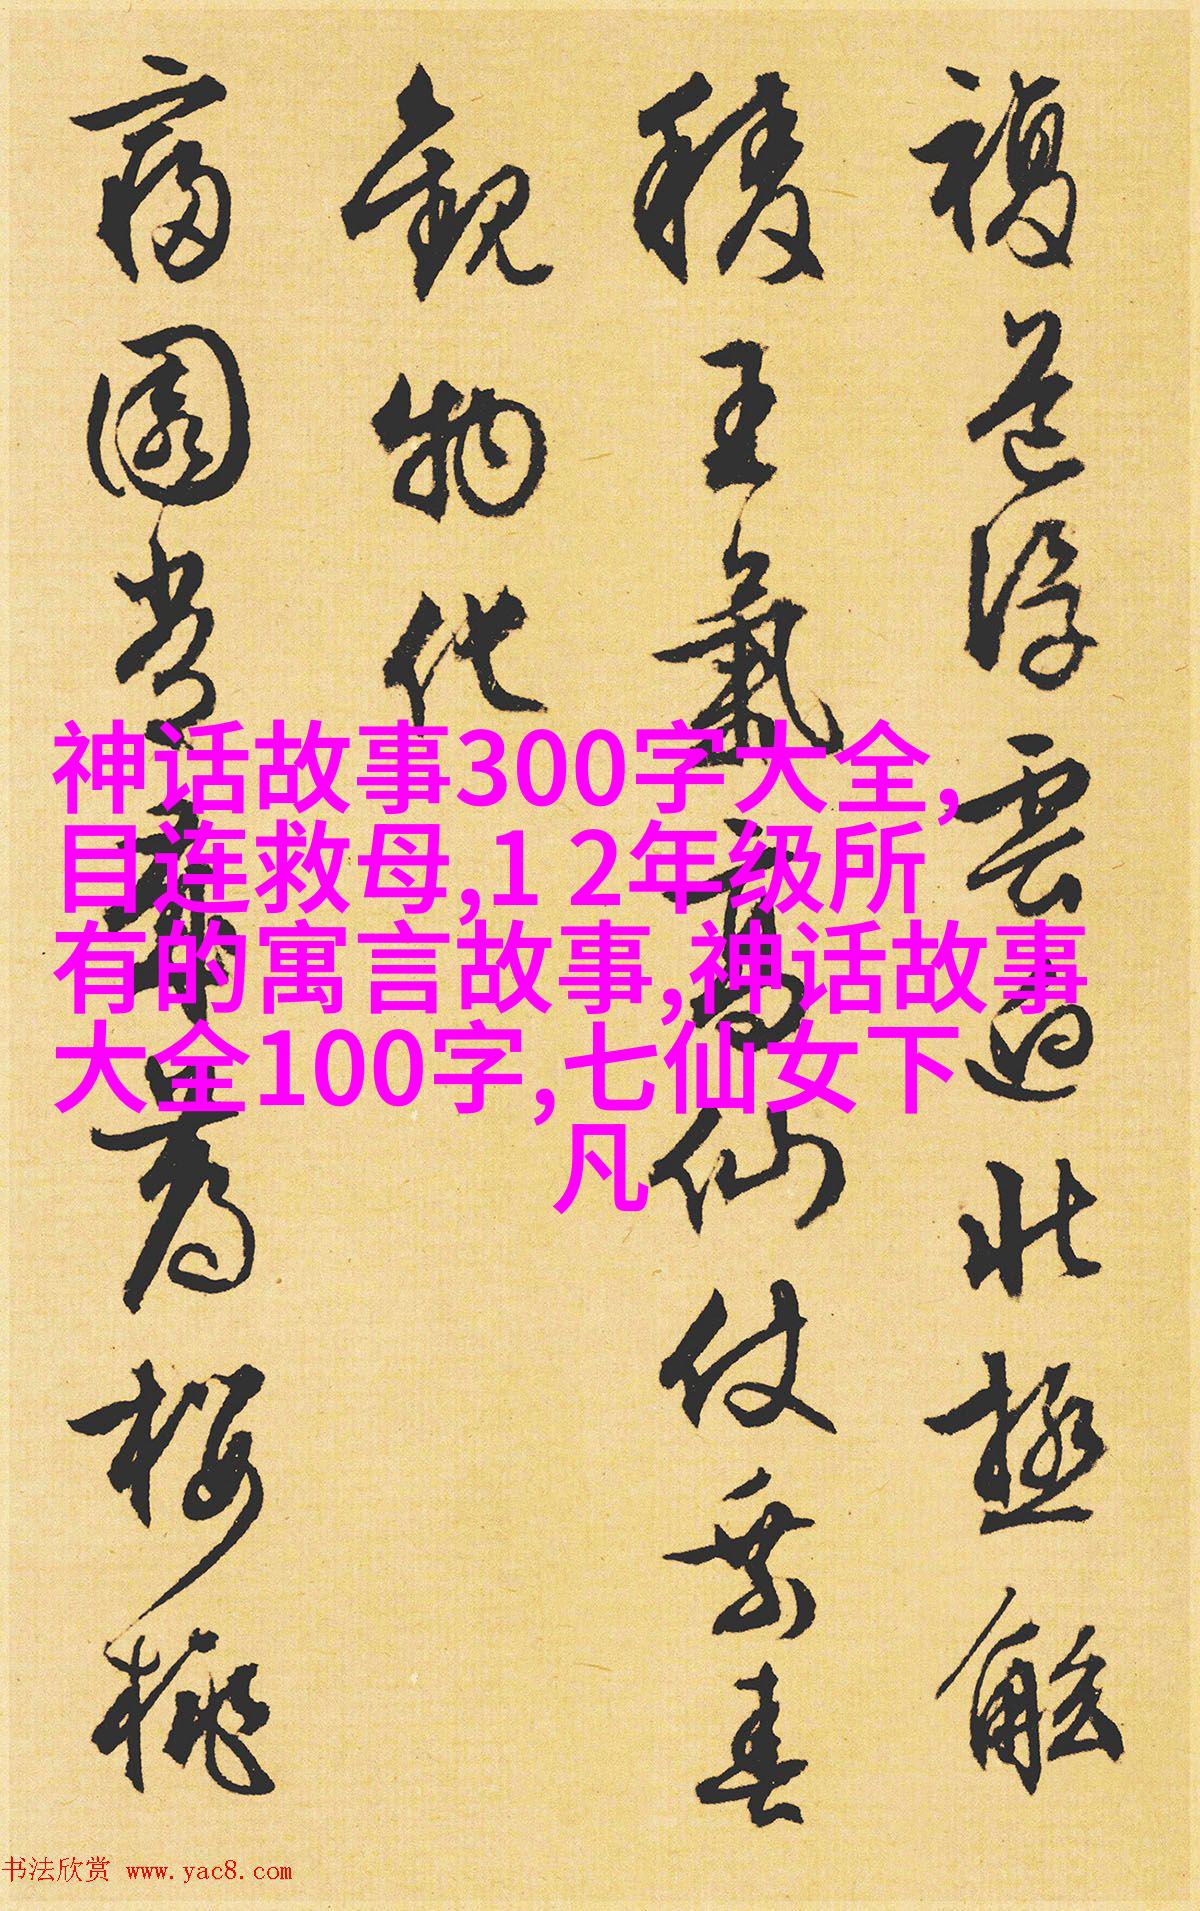 複道浮雲過北極觚
稜王氣高仙仗乘春
觀物化
寢園嘗帝薦櫻桃
神话故事300字大全,
目连救母,1 2年级所
有的寓言故事,神话故事
大全100字,七仙女下
凡
书法欣赏 www.yac8.com